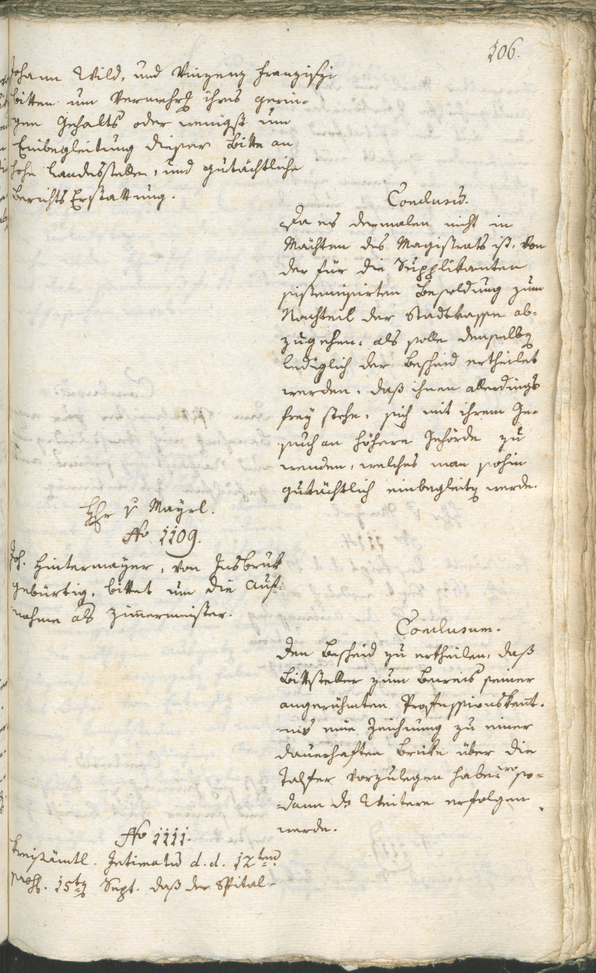 106.
Johann Wild, und Vinzenz Franzischi
bitten um Vermehrung ihres gerin-
gen Gehalts oder wenigst um
Einbegleitung dieser Bitte an
hohe Landesstelle, und gutächtliche
Berichts Erstattung.
Conclusum.
Da es dermalen nicht in
Mächten des Magistrats ist, von
der für die Supplikanten
sistemisirten Besoldung zum
Nachteil der Stadtkasse ab-
zugehen, als solle denselben
lediglich der Bescheid ertheilet
werden, daß ihnen allerdings
frey stehe, sich mit ihrem Ge-
such an höhere Gehörde zu
wenden, welches man sohin
gutächtlich einbegleiten werde.
Hr v Mayrl.
No 1109.
Jos. Hintermayer, von Insbruk
gebürtig, bittet um die Auf-
nahme als Zimmermeister.
Conclusum.
Den Bescheid zu ertheilen, daß
Bittsteller zum Beweis seiner
angerühmten Professionskennt-
nis eine Zeichnung zu einer
dauerhaften Brücke über die
Talfer vorzulegen habe, wo so-
dann das Weitere erfolgen
werde.
No 1111.
Kreisämtl. Intimatum d.d. 12ten
praes. 15ten Sept. daß der Spital-